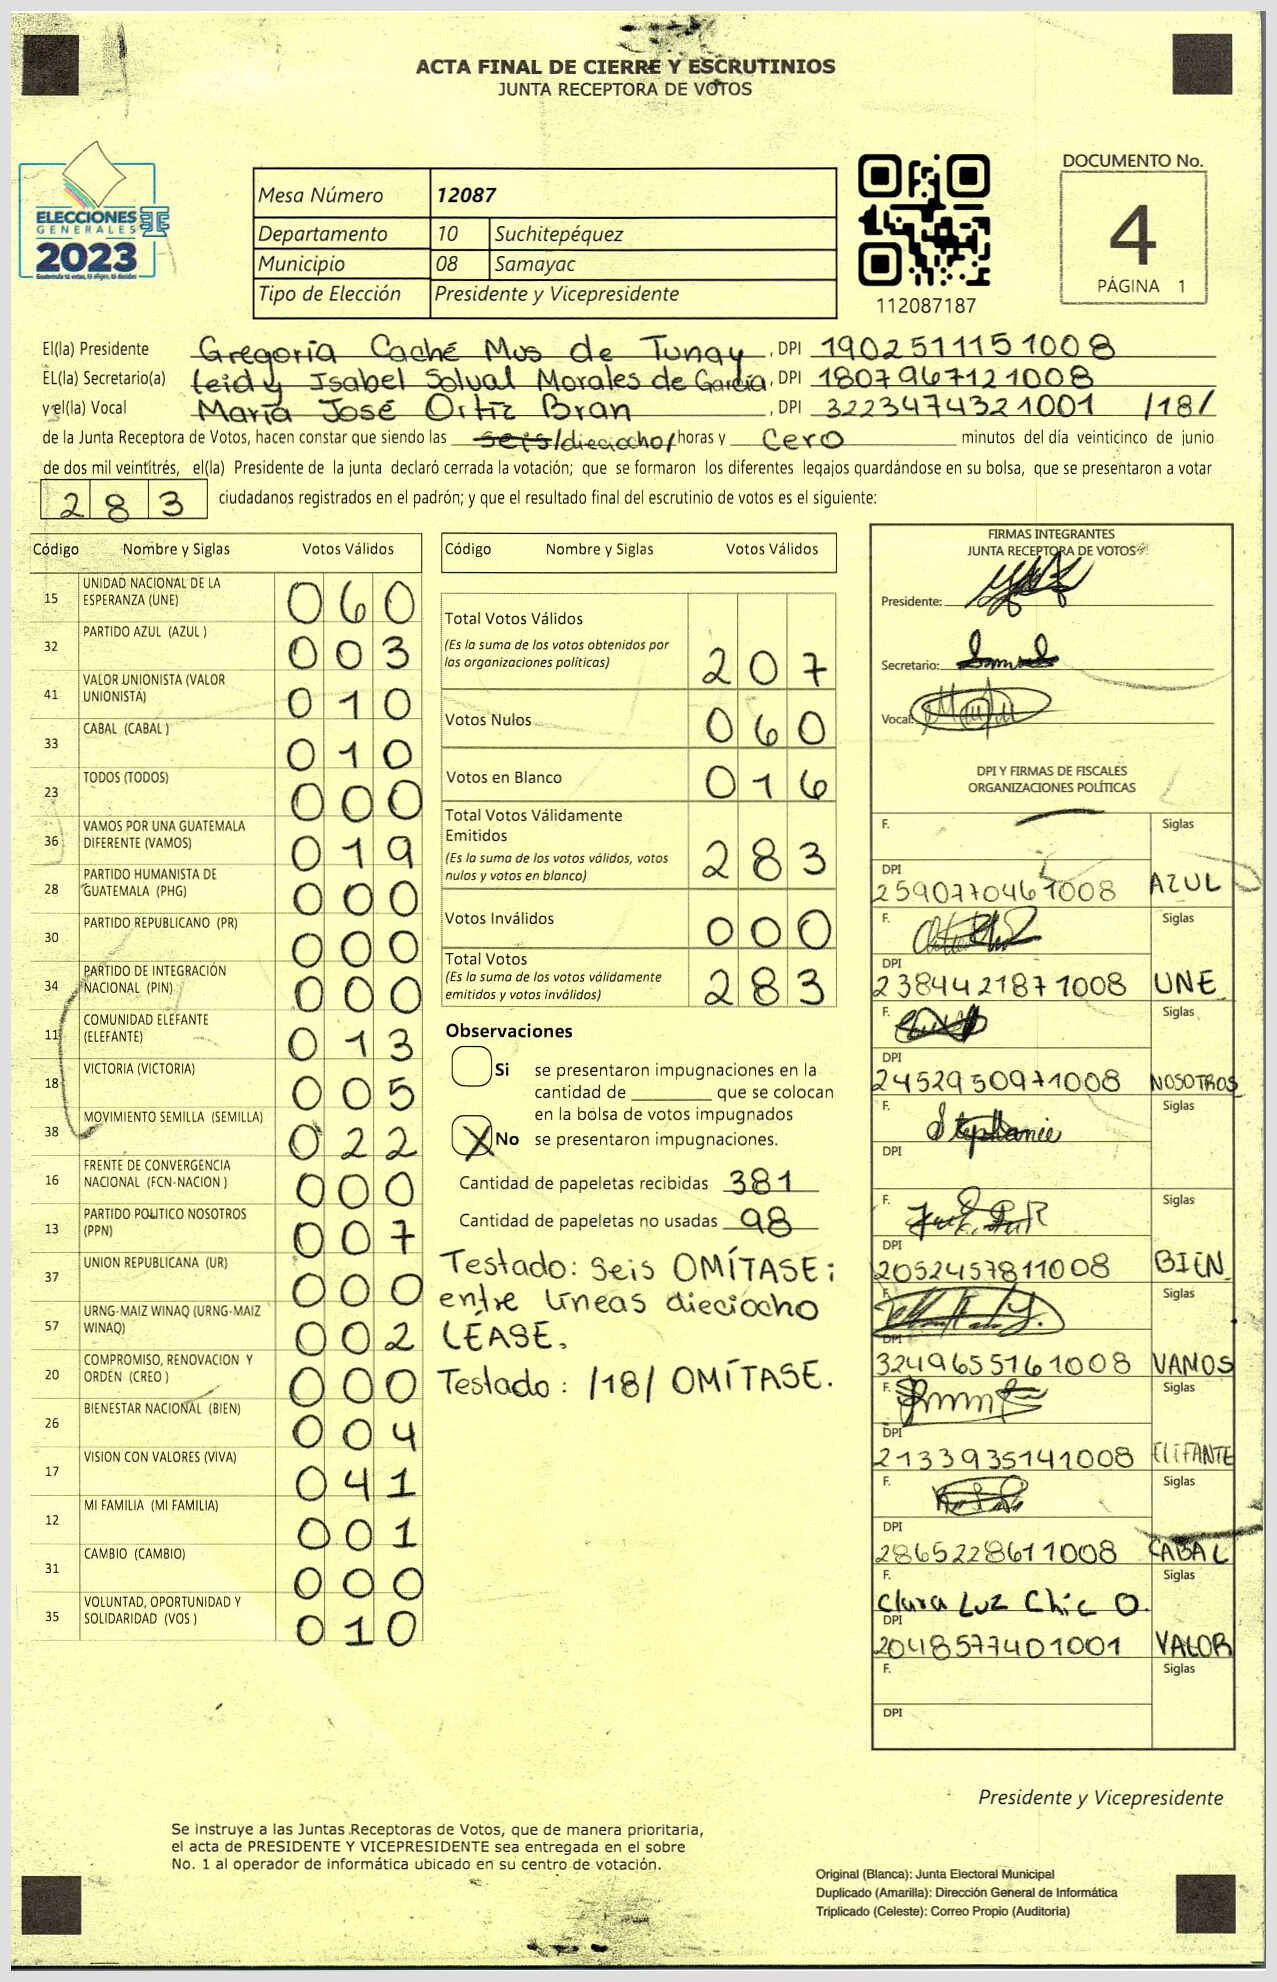 ACTA FINAL DE CIERRE Y ESCRUTINIOS
JUNTA RECEPTORA DE VOTOS
ELECCIONES
GENERALES
2023
Mesa Número 12087
Departamento 10 Suchitepéquez
Municipio 08 Samayac
Tipo de Elección Presidente y Vicepresidente
112087187
DOCUMENTO No.
4
PÁGINA 1
El(la) Presidente Gregoria Caché Mus de Tunay, DPI 1902511151008
EL(la) Secretario(a) Leidy Isabel Solval Morales de García, DPI 1807967121008
y el(la) Vocal María José Ortiz Bran, DPI 3223474321001 /18/
de la Junta Receptora de Votos, hacen constar que siendo las seis/dieciocho/ horas y cero minutos del día veinticinco de junio
de dos mil veintitrés, el(la) Presidente de la junta declaró cerrada la votación; que se formaron los diferentes legajos guardándose en su bolsa, que se presentaron a votar
283 ciudadanos registrados en el padrón; y que el resultado final del escrutinio de votos es el siguiente:
Código Nombre y Siglas Votos Válidos
15 UNIDAD NACIONAL DE LA ESPERANZA (UNE) 060
32 PARTIDO AZUL (AZUL ) 003
41 VALOR UNIONISTA (VALOR UNIONISTA) 010
33 CABAL (CABAL ) 010
23 TODOS (TODOS) 000
36 VAMOS POR UNA GUATEMALA DIFERENTE (VAMOS) 019
28 PARTIDO HUMANISTA DE GUATEMALA (PHG) 000
30 PARTIDO REPUBLICANO (PR) 000
34 PARTIDO DE INTEGRACIÓN NACIONAL (PIN) 000
11 COMUNIDAD ELEFANTE (ELEFANTE) 013
18 VICTORIA (VICTORIA) 005
38 MOVIMIENTO SEMILLA (SEMILLA) 022
16 FRENTE DE CONVERGENCIA NACIONAL (FCN-NACION ) 000
13 PARTIDO POLITICO NOSOTROS (PPN) 007
37 UNION REPUBLICANA (UR) 000
57 URNG-MAIZ WINAQ (URNG-MAIZ WINAQ) 002
20 COMPROMISO, RENOVACION Y ORDEN (CREO ) 000
26 BIENESTAR NACIONAL (BIEN) 004
17 VISION CON VALORES (VIVA) 041
12 MI FAMILIA (MI FAMILIA) 001
31 CAMBIO (CAMBIO) 000
35 VOLUNTAD, OPORTUNIDAD Y SOLIDARIDAD (VOS ) 010
Código Nombre y Siglas Votos Válidos
Total Votos Válidos 207
(Es la suma de los votos obtenidos por
las organizaciones políticas)
Votos Nulos 060
Votos en Blanco 016
Total Votos Válidamente
Emitidos 283
(Es la suma de los votos válidos, votos
nulos y votos en blanco)
Votos Inválidos 000
Total Votos 283
(Es la suma de los votos válidamente
emitidos y votos inválidos)
Observaciones
Si se presentaron impugnaciones en la
cantidad de ________ que se colocan
en la bolsa de votos impugnados
X No se presentaron impugnaciones.
Cantidad de papeletas recibidas 381
Cantidad de papeletas no usadas 98
Testado: seis OMÍTASE;
entre líneas dieciocho
LÉASE.
Testado: /18/ OMÍTASE.
FIRMAS INTEGRANTES
JUNTA RECEPTORA DE VOTOS
Presidente:
Secretario:
Vocal:
DPI Y FIRMAS DE FISCALES
ORGANIZACIONES POLÍTICAS
F. Siglas
DPI
2590770461008 AZUL
F. Siglas
DPI
2384421871008 UNE
F. Siglas
DPI
2452950971008 NOSOTROS
F. Stephanie Siglas
DPI
F. Siglas
DPI
2052457811008 BIEN
F. Siglas
DPI
3249655161008 VAMOS
F. Siglas
DPI
2133935141008 ELEFANTE
F. Siglas
DPI
2865228611008 CABAL
F. Siglas
Clara Luz Chic O.
DPI
2048577401001 VALOR
F. Siglas
DPI
Presidente y Vicepresidente
Se instruye a las Juntas Receptoras de Votos, que de manera prioritaria,
el acta de PRESIDENTE Y VICEPRESIDENTE sea entregada en el sobre
No. 1 al operador de informática ubicado en su centro de votación.
Original (Blanca): Junta Electoral Municipal
Duplicado (Amarilla): Dirección General de Informática
Triplicado (Celeste): Correo Propio (Auditoria)